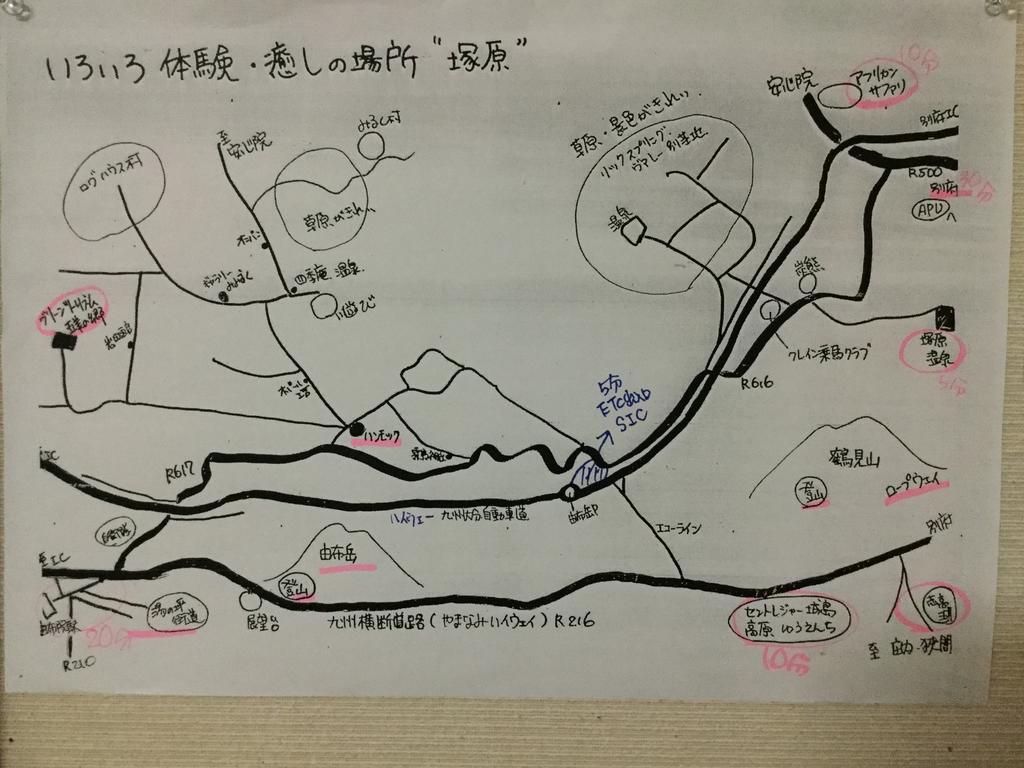 いろいろ 体験・癒しの場所 "塚原"
10分
安心院
アフリカン
サファリ
別府IC
R500
30分
別府
APU
へ
みるく村
至
安心院
ログハウス村
草原がきれい
草原・景色がきれい
リックスプリング
ヴァレー 別荘地
温泉
ギャラリー
四季庵 温泉
川遊び
グリーンツーリズム
クレイン乗馬クラブ
塚原
温泉
5分
R616
5分
ETCのみ
SIC
ハンモック
R617
鶴見山
登山
ロープウェイ
ハイウェー 九州大分自動車道
由布岳P
エコーライン
別府
自衛隊
由布岳
登山
至IC
湯の坪
街道
20分
R210
展望台
九州横断道路(やまなみハイウェイ) R216
セントレジャー城島
高原 ゆうえんち
10分
志高
湖
至 庄内・狭間